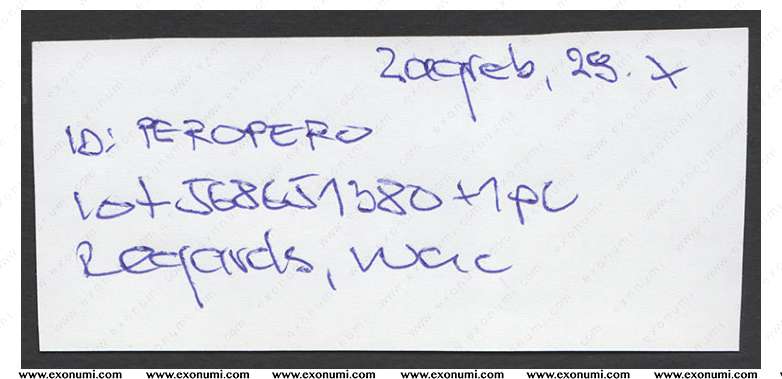 Zagreb, 29. X
ID: PEROPERO
Lot 568651380 + 1 pc
Regards,
www.exonumi.com www.exonumi.com www.exonumi.com www.exonumi.com www.exonumi.com www.exonumi.com